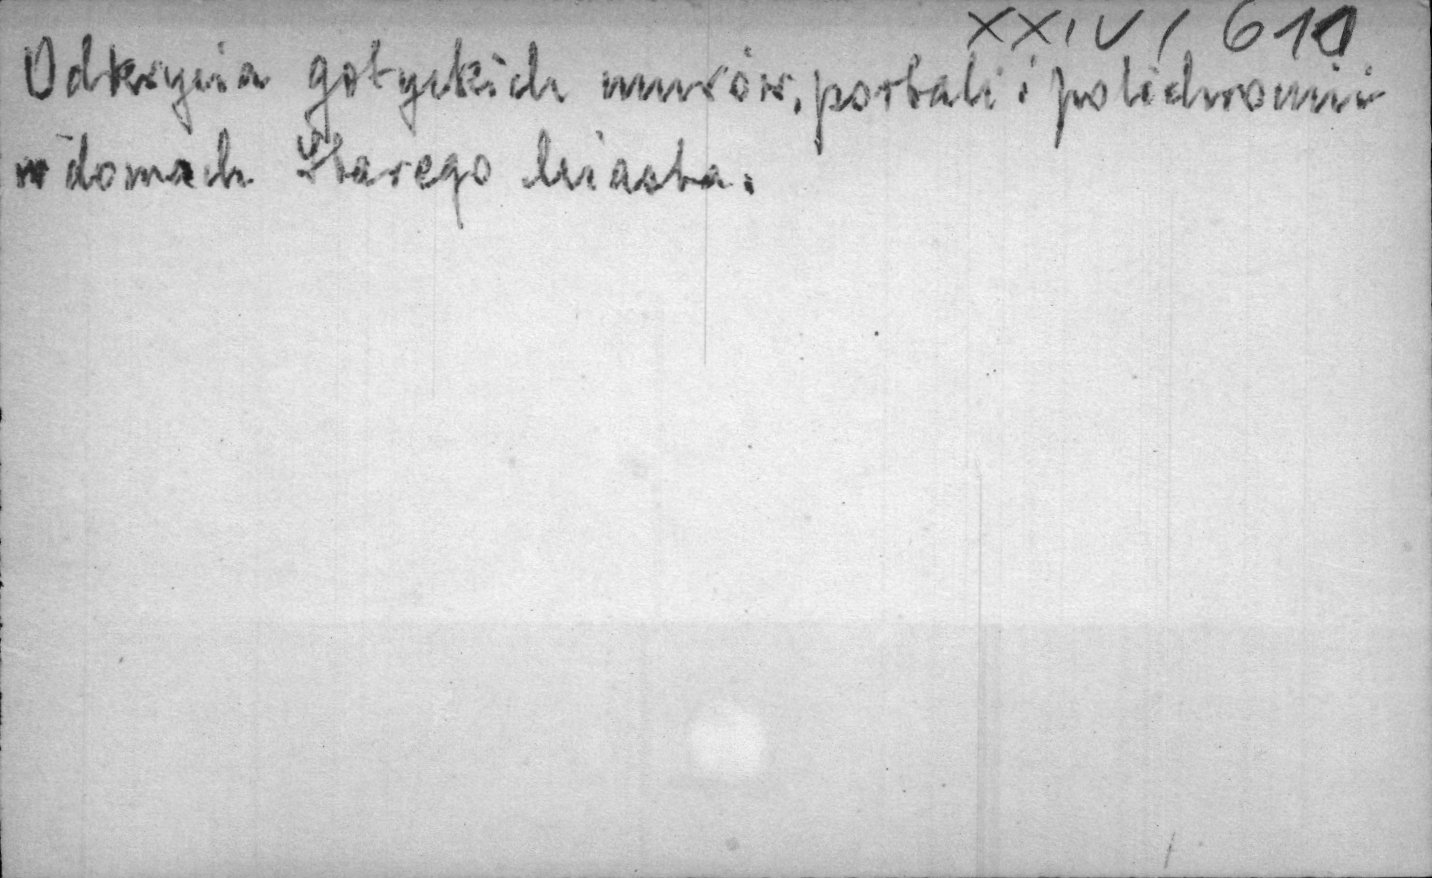 XXIV / 611
Odkrycia gotyckich murów, portali i polichromii
w domach Starego Miasta.